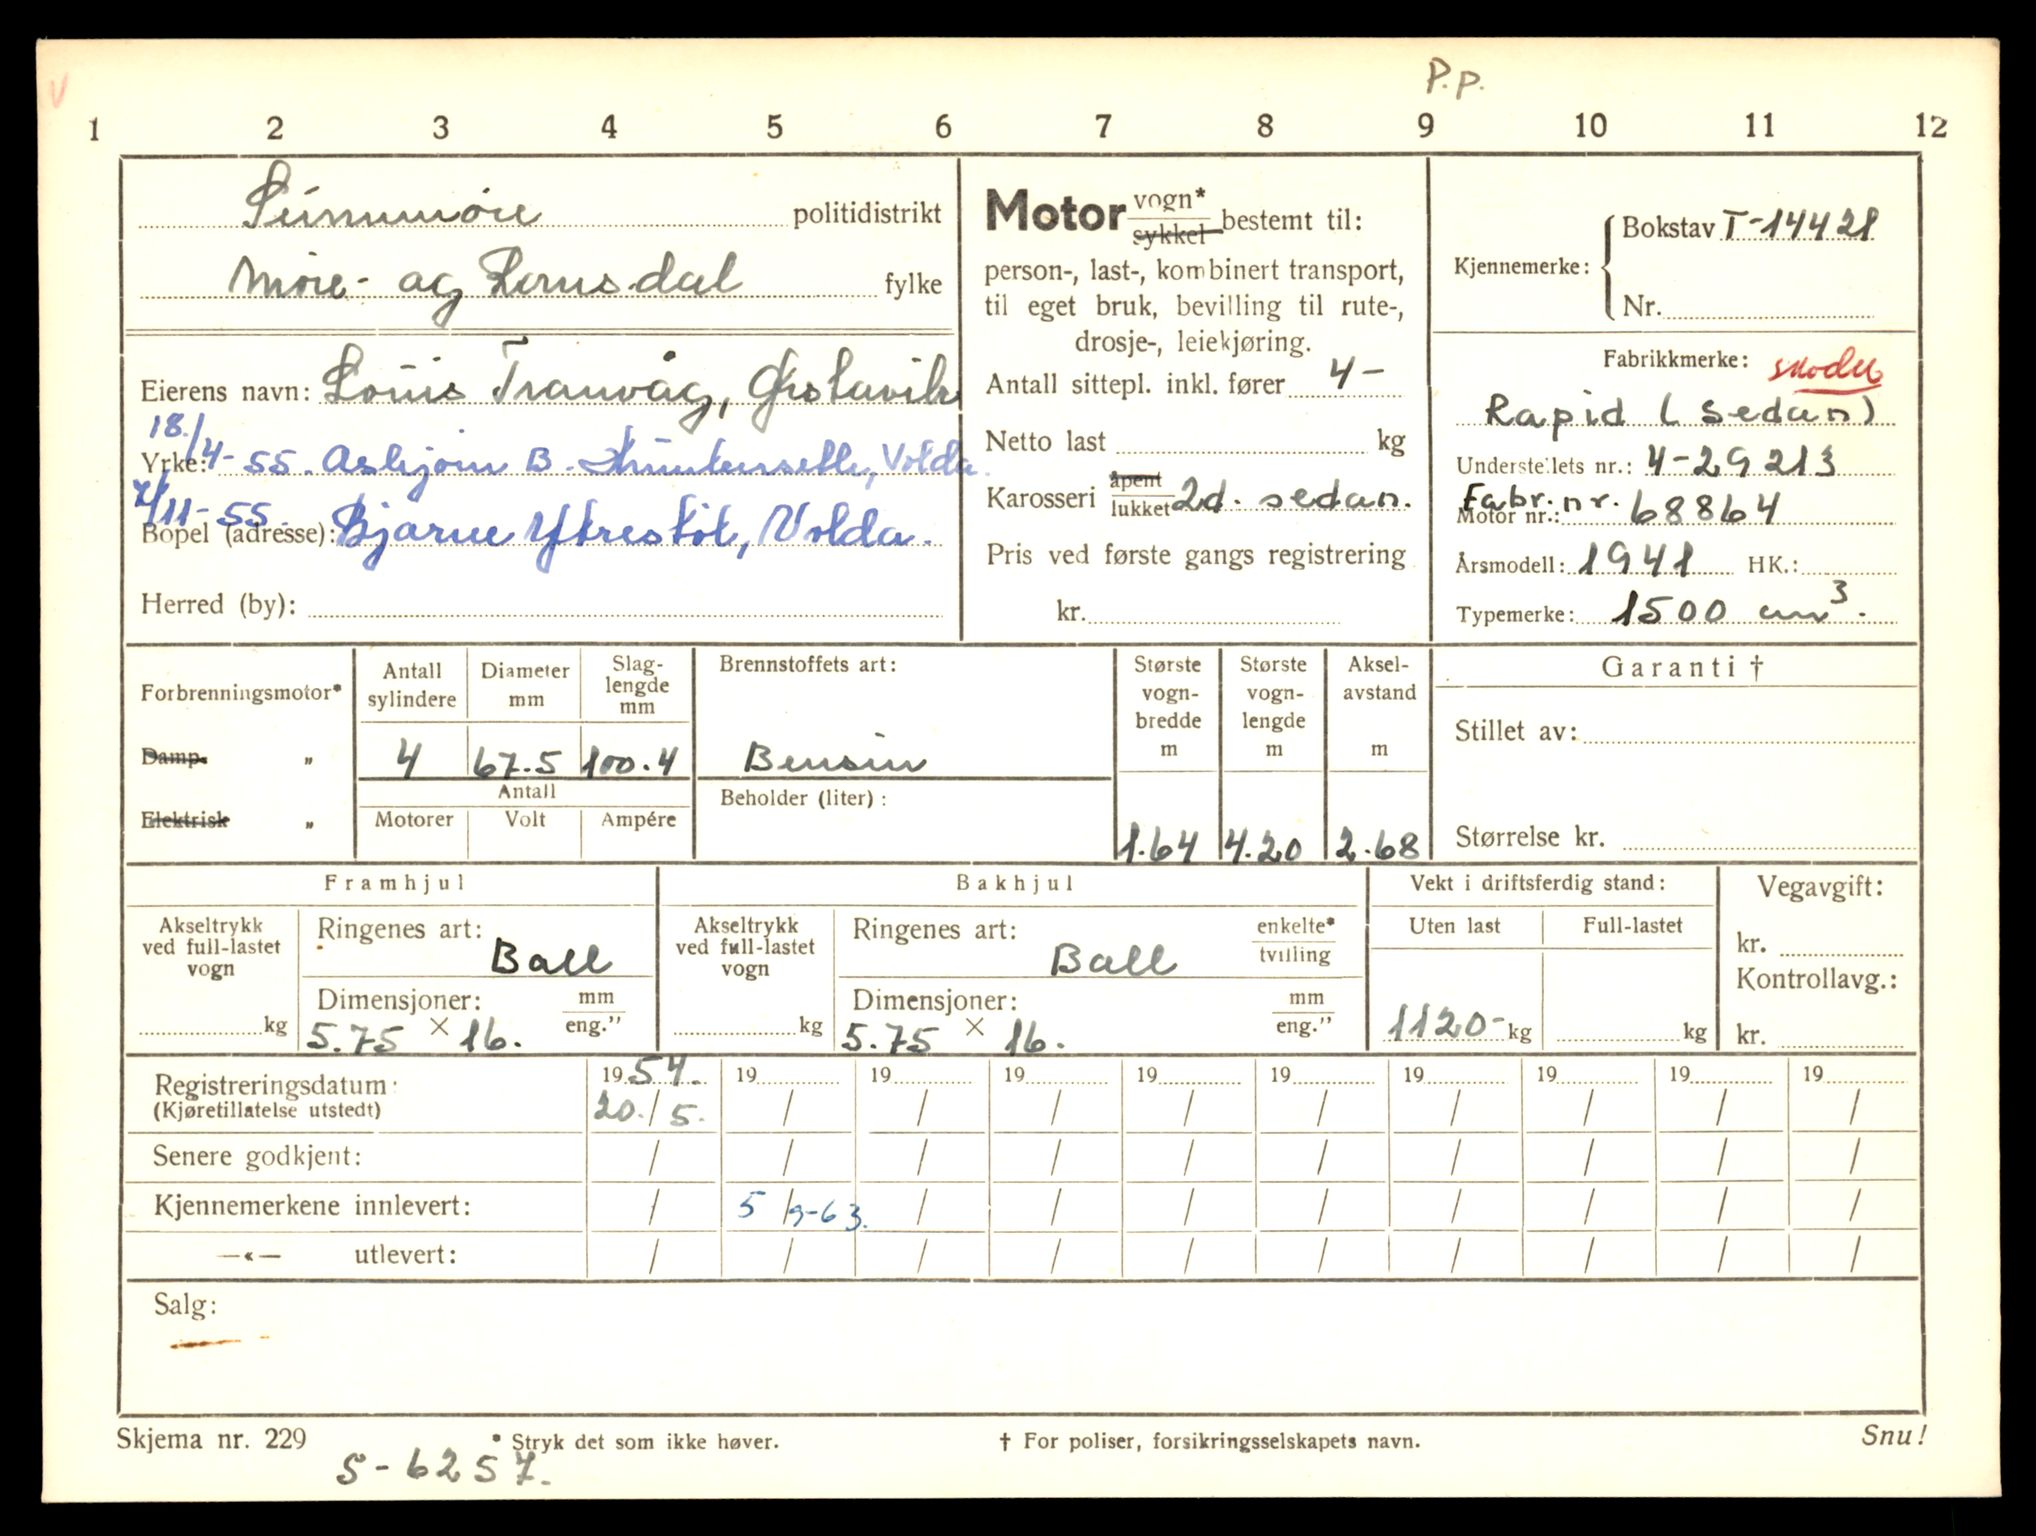 P.p.
V
1 2 3 4 5 6 7 8 9 10 11 12
Sunnmøre politidistrikt
Møre- og Romsdal fylke
Eierens navn: Louis Tranvåg, Gustavik
18./4-55. Asbjørn B. Volda.
Yrke:
7/11-55. Bjarne Ytrestøl, Volda.
Bopel (adresse):
Herred (by):
Motor vogn*
sykkel bestemt til:
person-, last-, kombinert transport,
til eget bruk, bevilling til rute-,
drosje-, leiekjøring.
Antall sittepl. inkl. fører 4-
Netto last kg
Karosseri åpent
lukket 2d. sedan.
Pris ved første gangs registrering
kr.
Kjennemerke: Bokstav T-14428
Nr.
Fabrikkmerke: Skoda
Rapid (sedan)
Understellets nr.: 4-29213
Fabr.nr. 68864
Motor nr.:
Årsmodell: 1941 HK.:
Typemerke: 1500 cm³.
Forbrenningsmotor*
Damp- „
Elektrisk „
Antall sylindere
Diameter mm
Slag-lengde mm
4 67.5 100.4
Antall
Motorer Volt Ampére
Brennstoffets art:
Bensin
Beholder (liter):
Største vogn-bredde m
Største vogn-lengde m
Aksel-avstand m
1.64 4.20 2.68
Garanti †
Stillet av:
Størrelse kr.
Framhjul
Akseltrykk
ved full-lastet
vogn
kg
Ringenes art:
Ball
Dimensjoner: mm
eng.”
5.75 × 16.
Bakhjul
Akseltrykk
ved full-lastet
vogn
kg
Ringenes art: enkelte*
tvilling
Ball
Dimensjoner: mm
eng.”
5.75 × 16.
Vekt i driftsferdig stand:
Uten last Full-lastet
1120- kg kg
Vegavgift:
kr.
Kontrollavg.:
kr.
Registreringsdatum: 1954. 19 19 19 19 19 19 19 19 19
(Kjøretillatelse utstedt) 20./5. / / / / / / / / /
Senere godkjent: / / / / / / / / / /
Kjennemerkene innlevert: / 5/9-63. / / / / / / / /
—«— utlevert: / / / / / / / / / /
Salg:
Skjema nr. 229 * Stryk det som ikke høver. † For poliser, forsikringsselskapets navn. Snu!
S-6257.